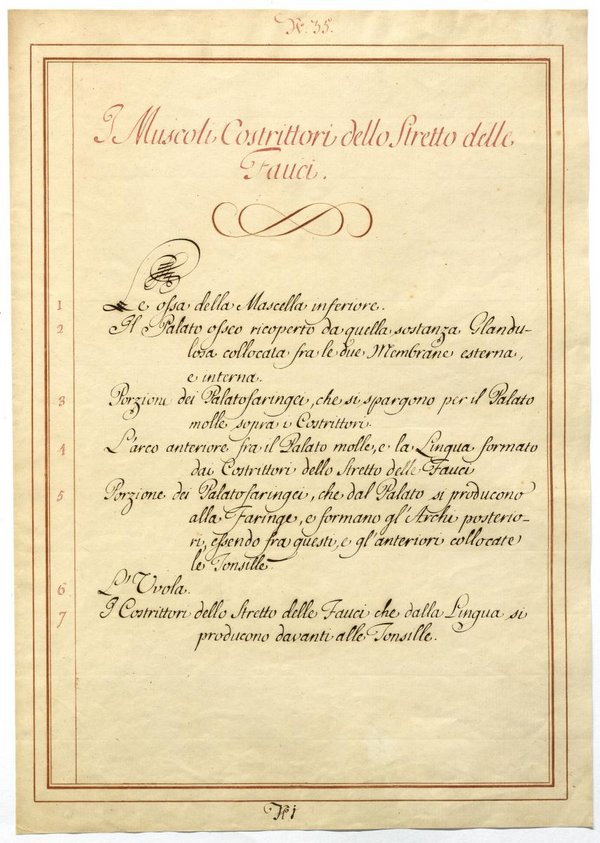 N.° 35.
I Muscoli Costrittori dello Stretto delle
Fauci.
1 Le ossa della Mascella inferiore.
2 Il Palato osseo ricoperto da quella sostanza Glandu-
losa collocata fra le due Membrane esterna,
e interna.
3 Porzioni dei Palatofaringei, che si spargono per il Palato
molle sopra i Costrittori.
4 L'arco anteriore fra il Palato molle, e la Lingua formato
dai Costrittori dello Stretto delle Fauci
5 Porzione dei Palatofaringei, che dal Palato si producono
alla Faringe, e formano gl'Archi posterio-
ri, essendo fra questi, e gl'anteriori collocate
le Tonsille.
6 L'Uvola.
7 I Costrittori dello Stretto delle Fauci che dalla Lingua si
producono davanti alle Tonsille.
N.° 1